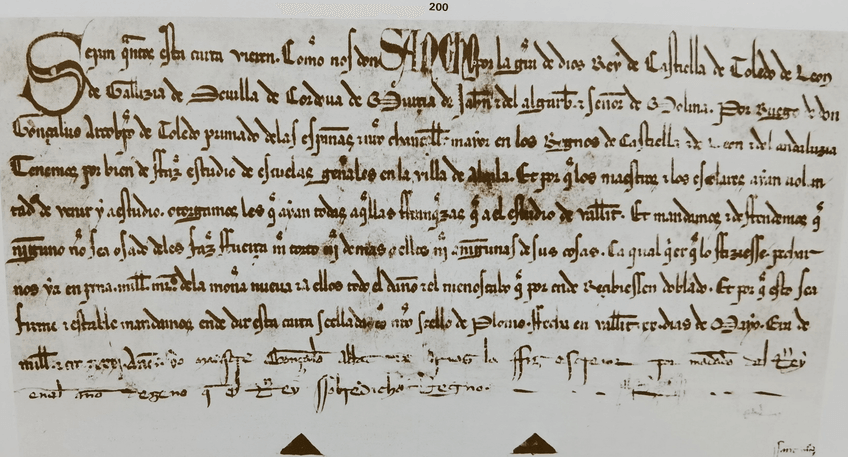 200
Sepan quantos esta carta vieren. Como nos don SANCHO por la gra de dios Rey de Castiella de Toledo de Leon
de Gallizia de Sevilla de Cordova de Murcia de Jahen τ del algarbe. τ señor de Molina. Por Ruego de don
Gonçaluo Arçobpo de Toledo primado delas españas τ nro chanceller mayor en los Regnos de Castiella τ de Leon τ del andaluzia
Tenemos por bien de ffazer estudio de escuelas generales en la villa de Alcala. Et por que los maestros τ los escolares ayan uolun
tad de venir y a estudio. otorgamos les que ayan todas aquellas ffranquezas que a el estudio de vallit. Et mandamos τ deffendemos que
ninguno non sea osado deles fazer fuerça nin tuerto nin demas a ellos nin a ningunas de sus cosas. Ca qual quier que lo ffiziesse pechar
nos ya en pena mill mrs dela moneda nueva τ a ellos todo el daño τ el menoscabo que por ende Reçibiessen doblado. Et por que esto sea
firme τ estable mandamos ende dar esta carta seellada con nro seello de Plomo. ffecha en vallit. xx. dias de Mayo. Era de
mill. τ ccc τ xxxi Años. yo maestre Gonçalo la ffiz escriuir por mandado del Rey
enel año que el Rey sobredicho Regno.